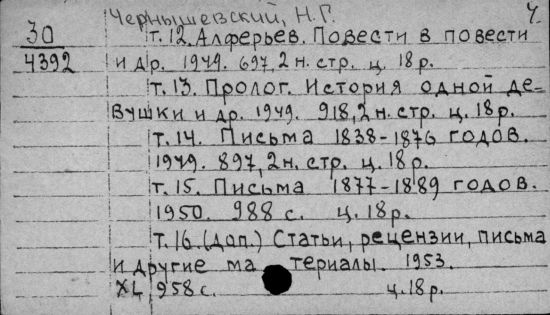 Чернышевский, Н.Г. 4.
30 т.12. Алферьев. Повести в повести
4392 и др. 1949. 697,2 н. стр. ц. 18 р.
т.13. Пролог. История одной де-
вушки и др. 1949. 918,2 н. стр. ц. 18 р.
т.14. Письма 1838-1876 годов.
1949. 897,2 н. стр. ц. 18 р.
т.15. Письма 1877-1889 годов.
1950. 988 с. ц. 18 р.
т.16. (доп.) Статьи, рецензии, письма
и другие ма териалы. 1953.
XL, 958 с. ц. 18 р.